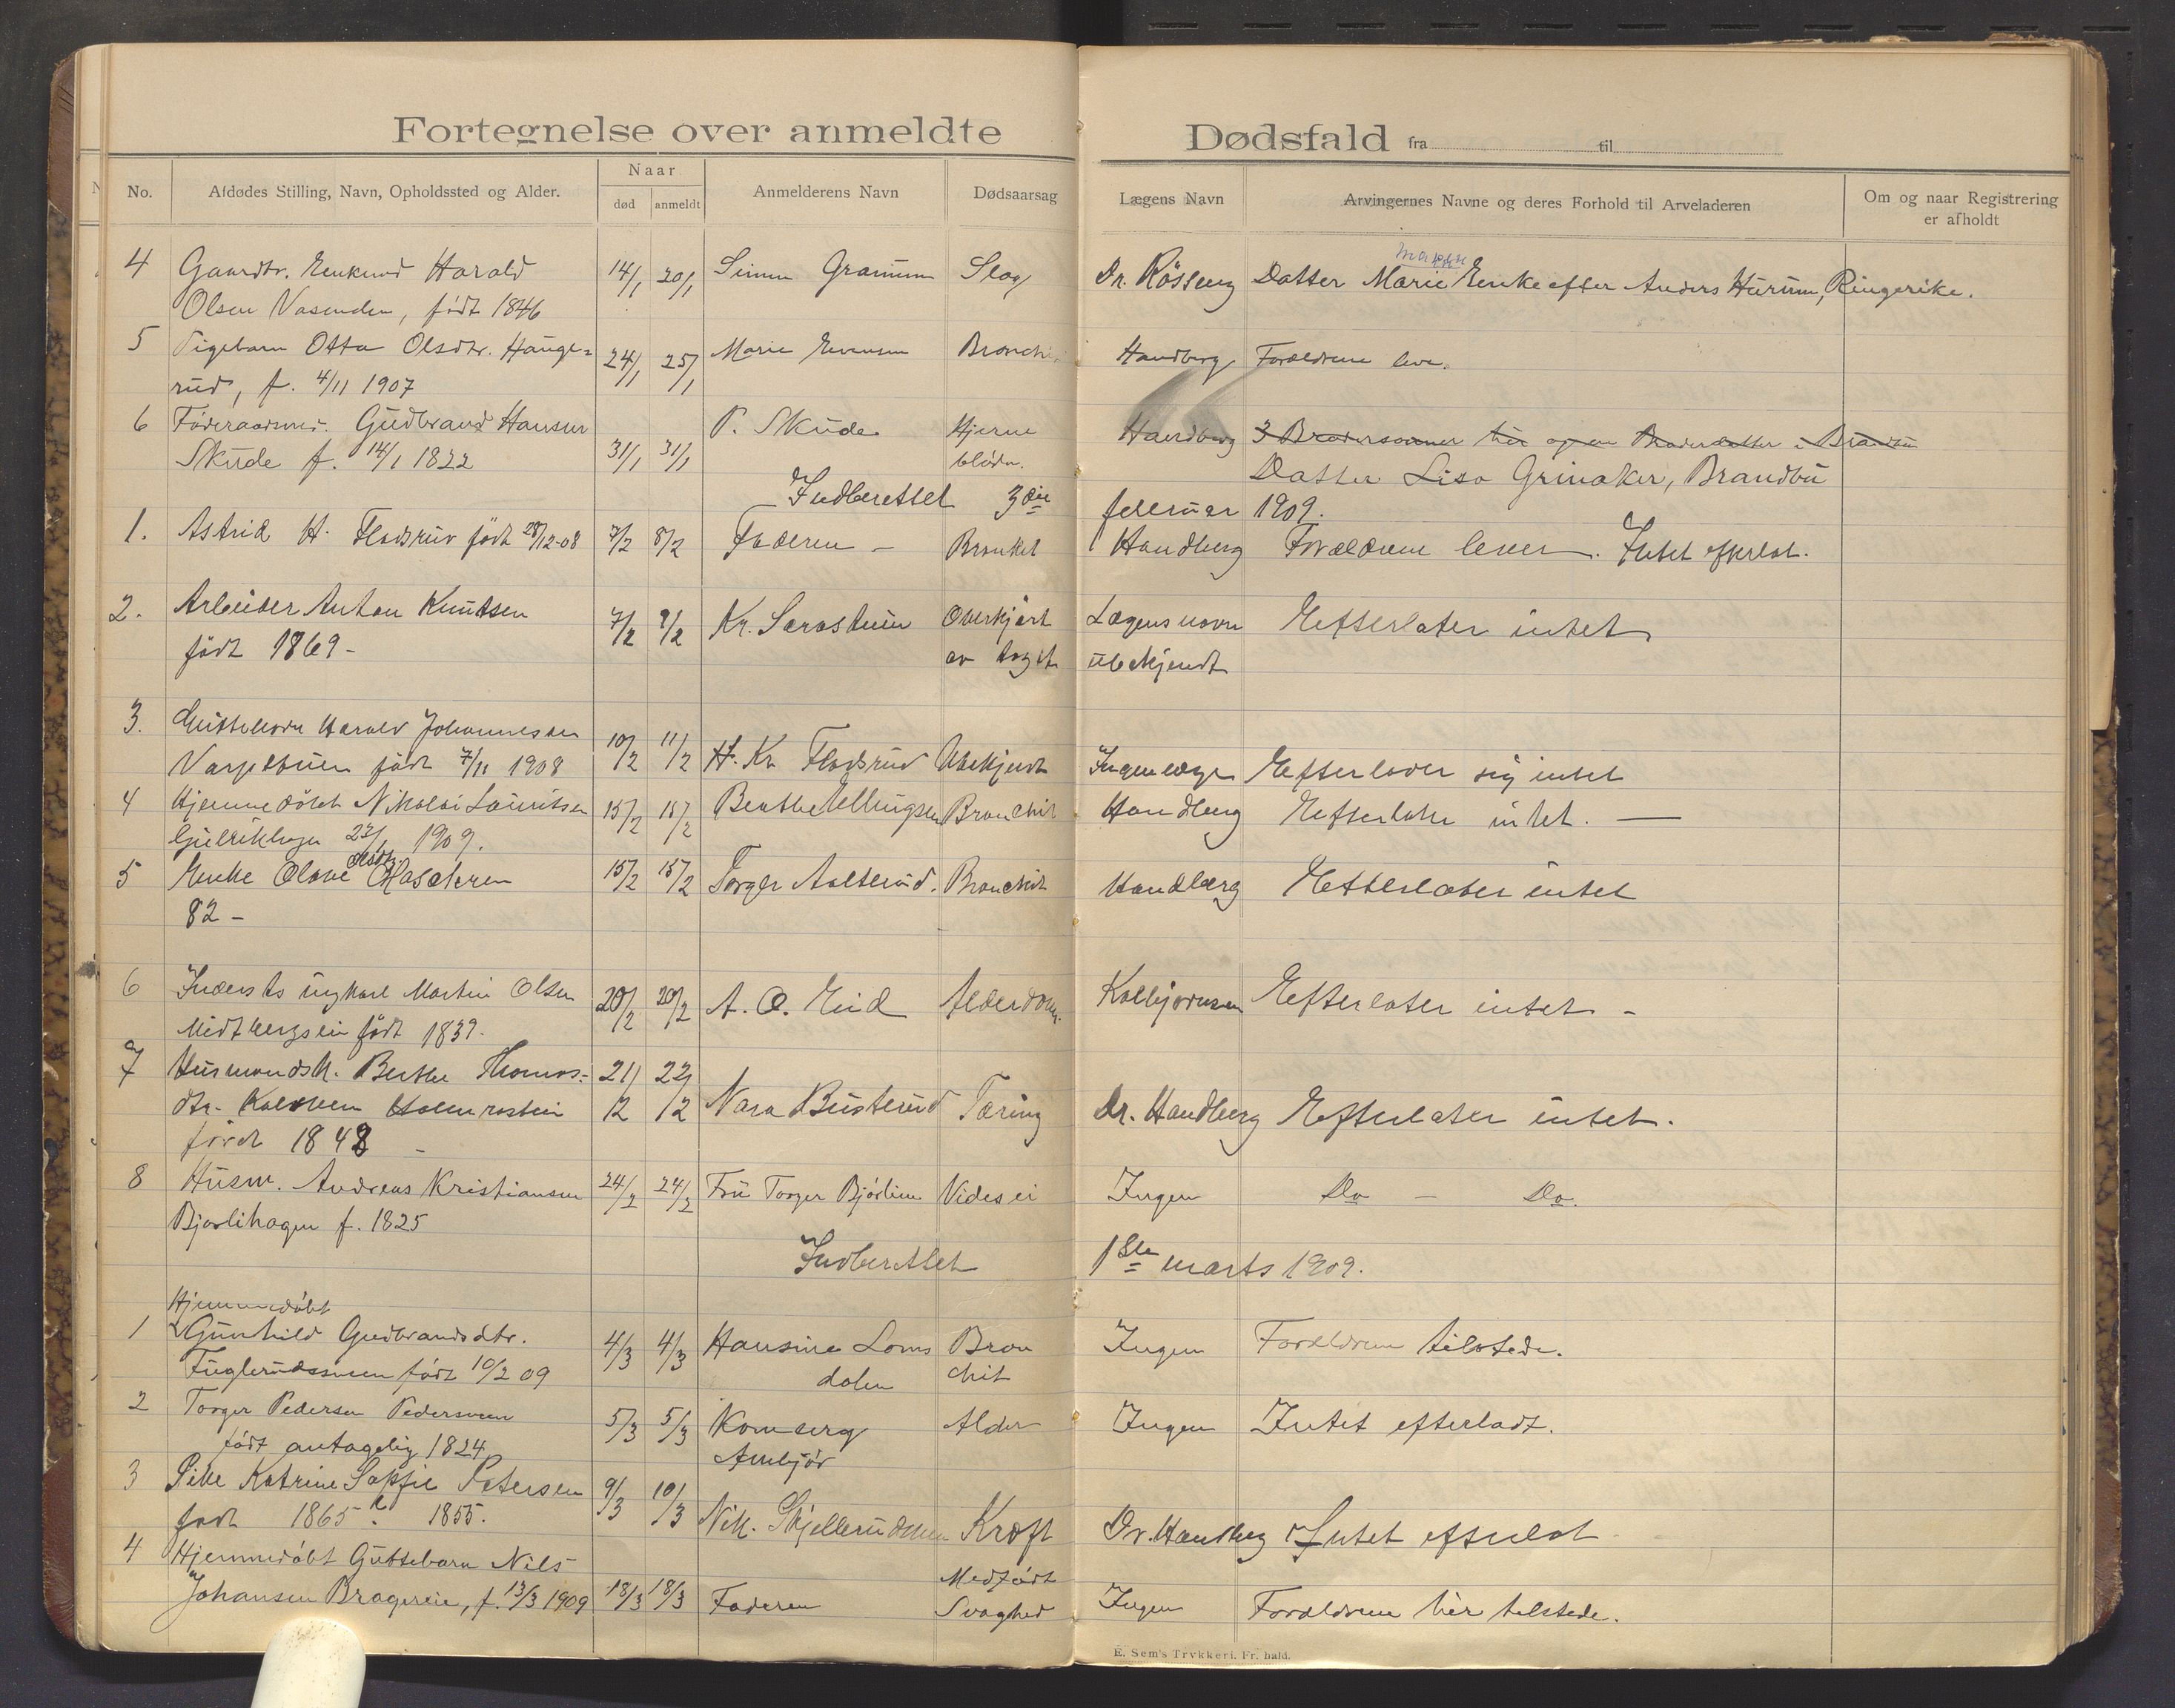 Fortegnelse over anmeldte Dødsfald fra til
No.
Afdødes Stilling, Navn, Opholdssted og Alder.
Naar
død anmeldt
Anmelderens Navn
Dødsaarsag
Lægens Navn
Arvingernes Navne og deres Forhold til Arveladeren
Om og naar Registrering
er afholdt
4 Gaardbr. Enkemd Harald 14/1 20/1 Simen Slag Dr. Datter Marie Enke efter Anders Hurum, Ringerike.
Olsen Vasenden, født 1846
5 Pigebarn Otta Olsdtr. Hauge= 24/1 25/1 Marie Evensen Bronchi Handberg Forældrene leve.
rud, f. 4/11 1907
6 Føderaadsmd. Gudbrand Hansen P. Skude Hjerne Handberg 3 Brodersønner her og en Broderdatter i Brandbu
Skude f. 14/1 1822 31/1 31/1 blødn. Datter Lisa Grinaker, Brandbu
Indberettet 3die februar 1909.
1. Astrid H. Flodsrud født 28/12-08 7/2 8/2 Faderen – Bronkit Handberg Forældrene lever. Intet efterlat.
2. Arbeider Anton Knutsen 7/2 9/2 Kr. Overkjørt Lægens navn Efterlater intet
født 1869 – av toget ubekjendt
3. Guttebarn Harald Johannessen 10/2 11/2 H. Kr Flodsrud Ubekjendt Ingen læge Efterlader sig intet
født 7/11 1908
4 Hjemmedøbt Nikolai Lauritsen 15/2 15/2 Berthe Ellingsen Bronchit Handberg Efterlater intet. –
1909.
5 Enke Olave Olsdtr. 15/2 15/2 Torger Aalterud. Bronchit Handberg Efterlater intet
82 –
6 Inderst ungkarl Martin Olsen 20/2 20/2 A. O. Eid Alderdom. Kolbjørnsen Efterlater intet –
født 1839.
7 Husmandsk. Berthe Thomas- 21/2 22/2 Tæring Dr. Handberg Efterlater intet.
dtr.
født 1848 –
8 Husm. Andreas Kristiansen 24/2 24/2 Fru Torger Bjørlien Vides ei Ingen Do – Do.
Bjørlihagen f. 1825
Indberettet 1ste marts 1909.
Hjemmedøbt
1 Gunhild Gudbrandsdtr. 4/3 4/3 Hansine Loms Bron Ingen Forældrene tilstede.
født 10/2 09 dalen chit
2 Torger Pedersen Pedersveen 5/3 5/3 Alder Ingen Intet efterladt.
født antagelig 1824
3 Pike Katrine Sofie Petersen 9/3 10/3
født 1865? 1855. Nik. Kræft Dr. Handberg Intet efterlat
4 Hjemmedøbt Guttebarn Nils Medfødt
Johansen f. 13/3 1909 18/3 18/3 Faderen Svaghed Ingen Forældrene her tilstede.
E. Sem's Trykkeri. Fr. hald.